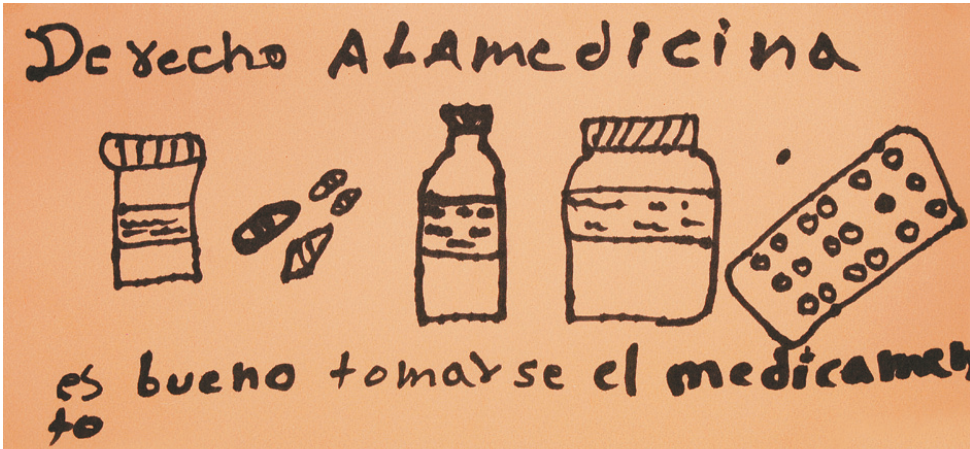 Derecho ALAmedicina
es bueno tomarse el medicamen
to